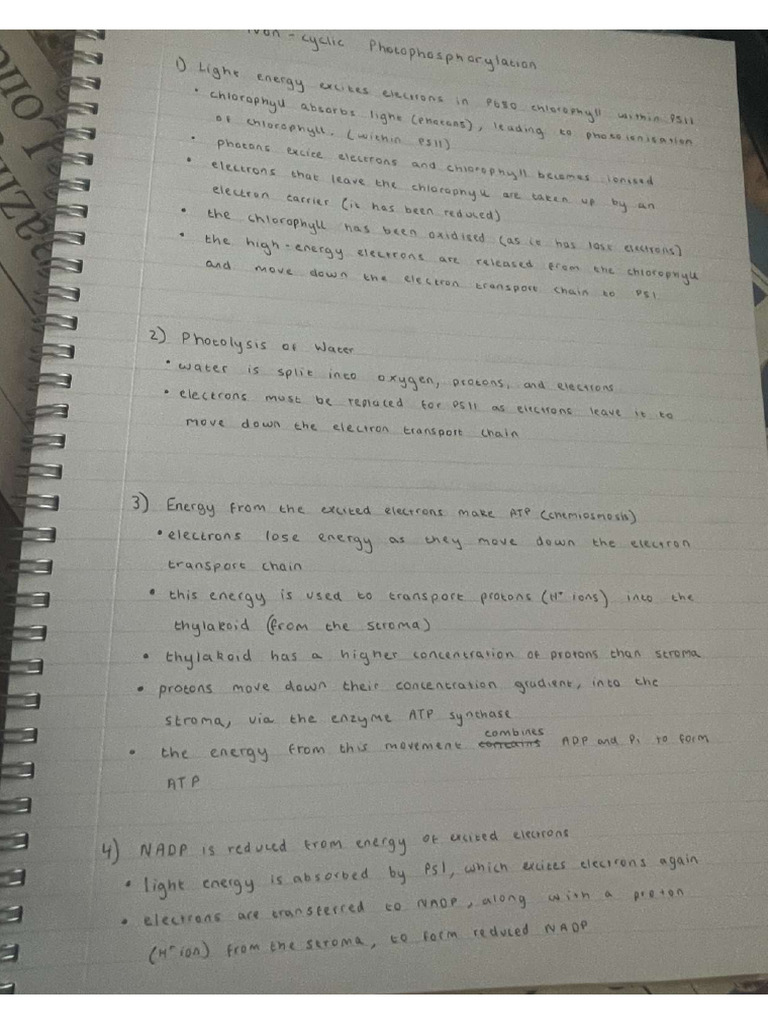 Non-cyclic Photophosphorylation
1) Light energy excites electrons in P680 chlorophyll within PSII
• chlorophyll absorbs light (photons), leading to photoionisation
of chlorophyll. (within PSII)
• photons excite electrons and chlorophyll becomes ionised
• electrons that leave the chlorophyll are taken up by an
electron carrier (it has been reduced)
• the chlorophyll has been oxidised (as it has lost electrons)
• the high-energy electrons are released from the chlorophyll
and move down the electron transport chain to PSI
2) Photolysis of Water
• water is split into oxygen, protons, and electrons
• electrons must be replaced for PSII as electrons leave it to
move down the electron transport chain
3) Energy from the excited electrons make ATP (chemiosmosis)
• electrons lose energy as they move down the electron
transport chain
• this energy is used to transport protons (H+ ions) into the
thylakoid (from the stroma)
• thylakoid has a higher concentration of protons than stroma
• protons move down their concentration gradient, into the
stroma, via the enzyme ATP synthase
• the energy from this movement combines ADP and Pi to form
ATP
4) NADP is reduced from energy of excited electrons
• light energy is absorbed by PSI, which excites electrons again
• electrons are transferred to NADP, along with a proton
(H+ ion) from the stroma, to form reduced NADP